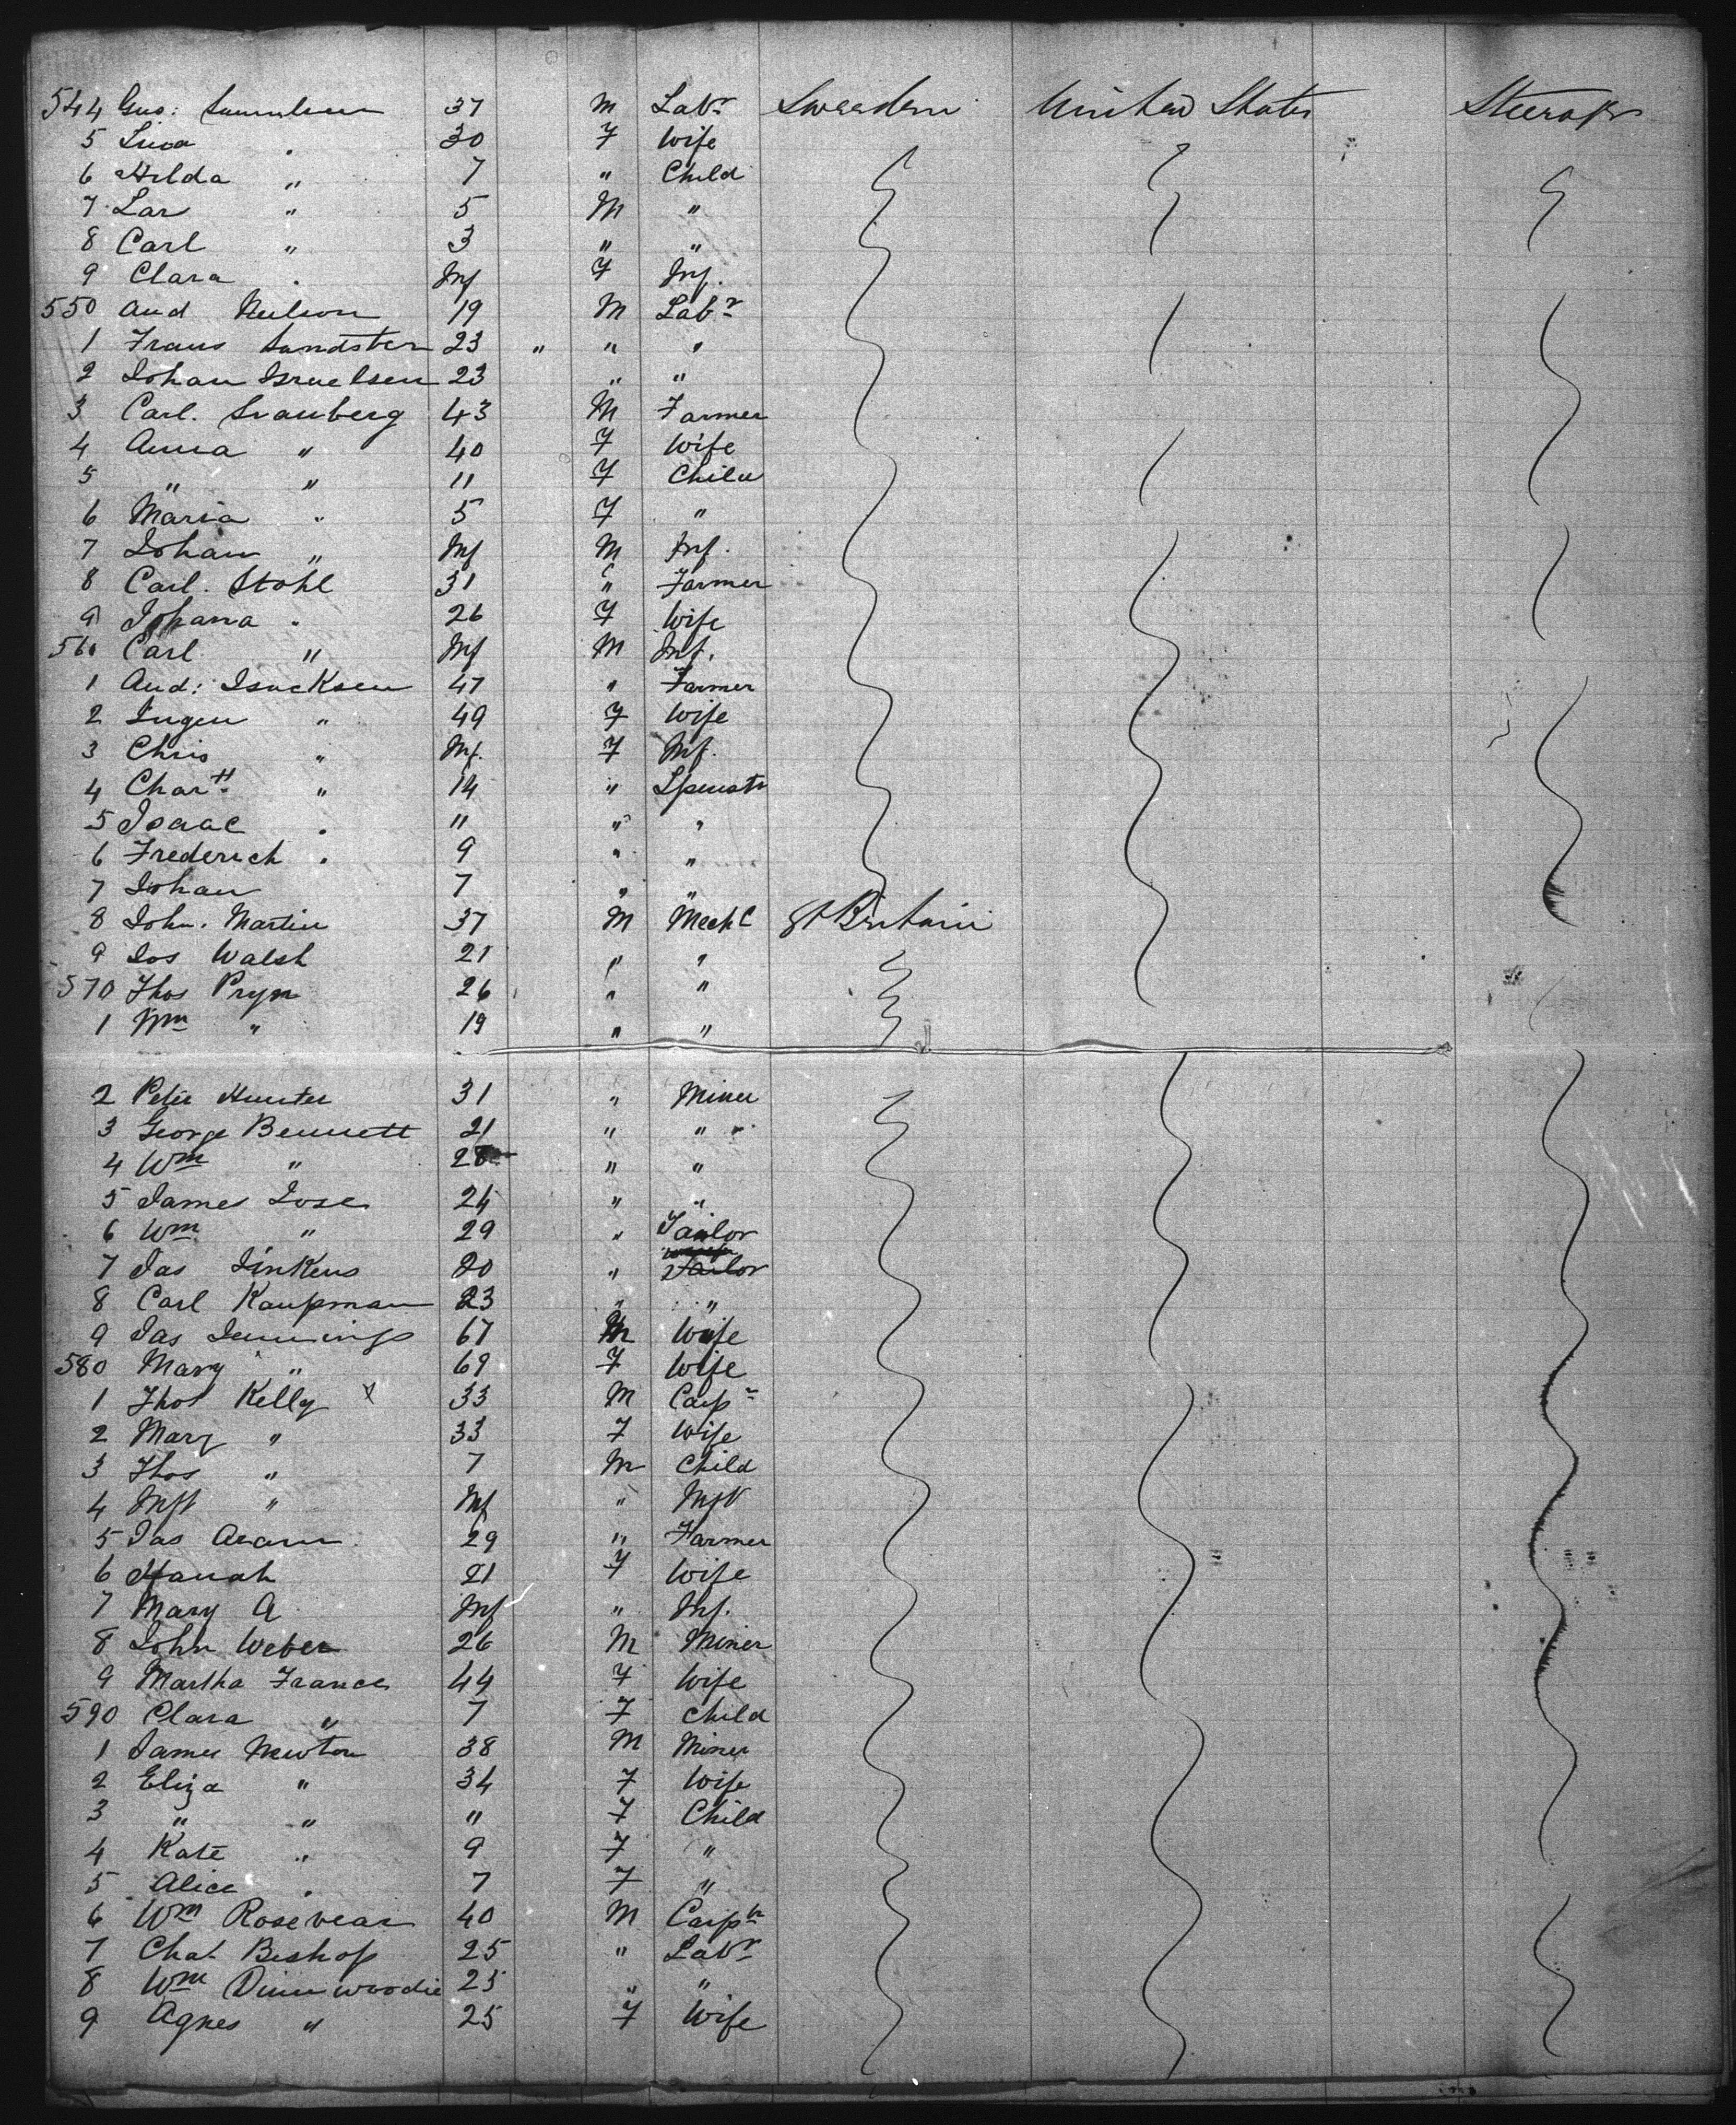 544 Gus: 37 M Labr Sweeden United States Steerage
5 30 F Wife
6 Hilda " 7 " Child
7 Lar " 5 M "
8 Carl " 3 " "
9 Clara . Inf F Inf.
550 And Neilson 19 M Labr
1 Frans Sandsten 23 " " "
2 Johan Isruelsen 23 " "
3 Carl. Svanberg 43 M Farmer
4 Anna " 40 F Wife
5 " " 11 F Child
6 Maria " 5 F "
7 Johan " Inf M Inf.
8 Carl. Stohl 31 " Farmer
9 Johana . 26 F Wife
560 Carl " Inf M Inf.
1 And: Isacksen 47 " Farmer
2 Ingen " 49 F Wife
3 Chris " Inf. F Inf.
4 Chartt " 14 " Spinstr
5 Isaac . 11 " "
6 Frederich . 9 " "
7 Johan 7 " "
8 John. Martin 37 M Mechc Gt Britain
9 Jos Walsh 21 " "
570 Thos Pryn 26 " "
1 Wm " 19 " "
2 Peter Hunter 31 " Miner
3 George Bennett 21 " "
4 Wm " 28 " "
5 James Jose 24 " "
6 Wm " 29 " Tailor
7 Jas Jinkens 20 " Tailor
8 Carl Kaupman 23 " "
9 Jas Jennings 67 M Wife
580 Mary " 69 F Wife
1 Thos Kelly x 33 M Carpr
2 Mary " 33 F Wife
3 Thos " 7 M Child
4 Inft " Inf " Inft
5 Jas 29 " Farmer
6 Hanah 21 F Wife
7 Mary A Inf " Inf.
8 John Weber 26 M Miner
9 Martha Frances 44 F Wife
590 Clara " 7 F Child
1 James Newton 38 M Miner
2 Eliza " 34 F Wife
3 " " 11 F Child
4 Kate " 9 F "
5 Alice . 7 F "
6 Wm Rosevear 40 M Carpr
7 Chas Bishop 25 " Labr
8 Wm Dinnwoodie 25 " "
9 Agnes " 25 F Wife